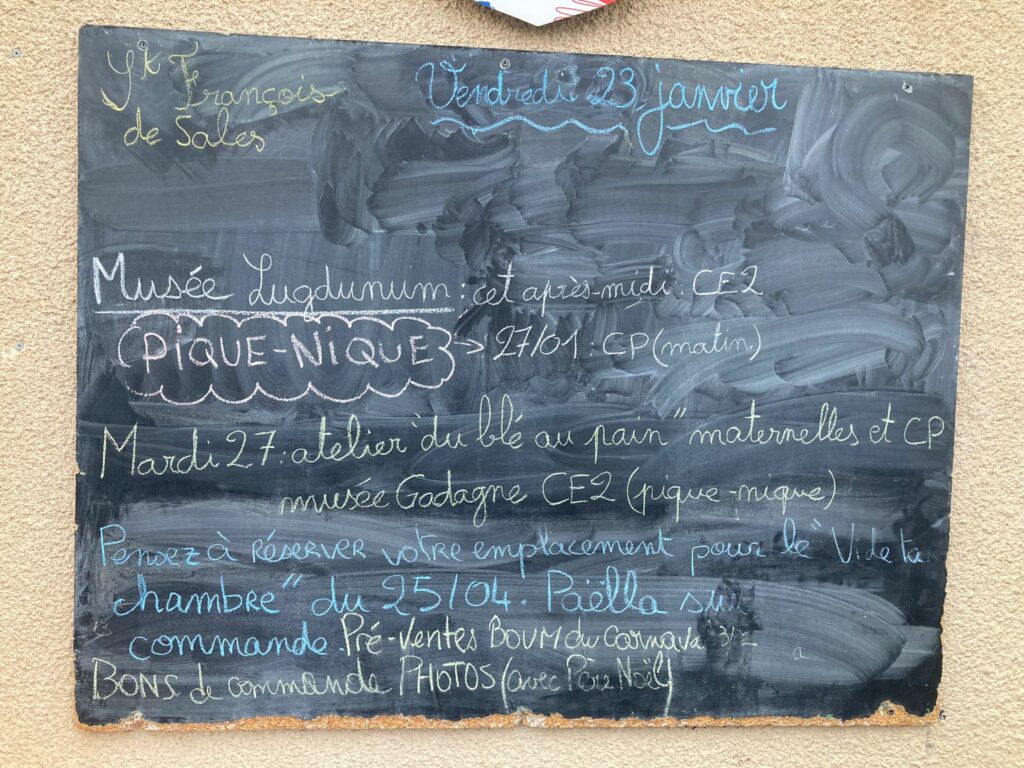 François
Vendredi 23 janvier
de Sales
Musée Lugdunum : cet après-midi : CE2
PIQUE-NIQUE → 27/01 : CP (matin)
Mardi 27 : atelier "du blé au pain" maternelles et CP
musée Gadagne CE2 (pique-nique)
Pensez à RÉSERVER votre emplacement pour le "Vide ta
chambre" du 25/04. Paëlla sur
commande. Pré-Ventes BOUM du Carnaval
BONS de commande PHOTOS (avec Père Noël)